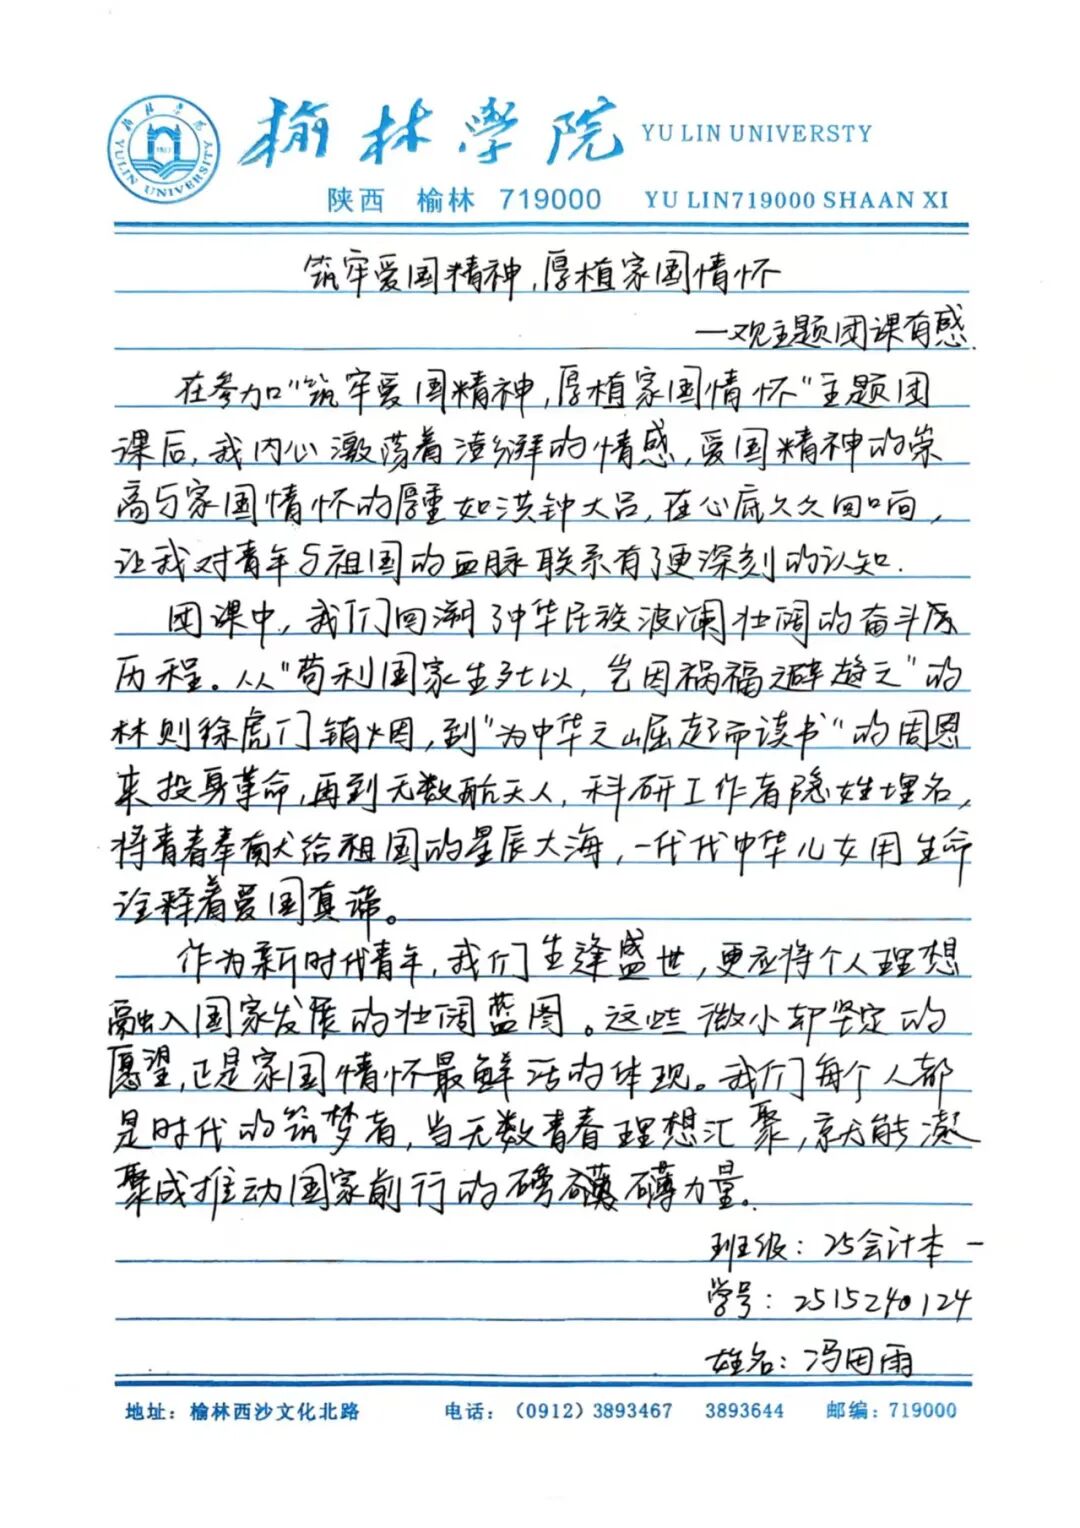 榆林学院 YU LIN UNIVERSTY
陕西 榆林 719000 YU LIN719000 SHAAN XI
筑牢爱国精神,厚植家国情怀
—观主题团课有感.
在参加“筑牢爱国精神,厚植家国情怀”主题团
课后,我内心激荡着澎湃的情感,爱国精神的崇
高与家国情怀的厚重如洪钟大吕,在心底久久回响,
让我对青年与祖国的血脉联系有了更深刻的认知.
团课中,我们回溯了中华民族波澜壮阔的奋斗历
历程。从“苟利国家生死以,岂因祸福避趋之”的
林则徐虎门销烟,到“为中华之崛起而读书”的周恩
来投身革命,再到无数航天人,科研工作者隐姓埋名,
将青春奉献给祖国的星辰大海,一代代中华儿女用生命
诠释着爱国真谛。
作为新时代青年,我们生逢盛世,更应将个人理想
融入国家发展的壮阔蓝图。这些微小却坚定的
愿望,正是家国情怀最鲜活的体现。我们每个人都
是时代的筑梦者,当无数青春理想汇聚,就能凝
聚成推动国家前行的磅礴力量。
班级:25会计本一
学号:2515240124
姓名:冯田雨
地址:榆林西沙文化北路 电话:(0912)3893467 3893644 邮编:719000